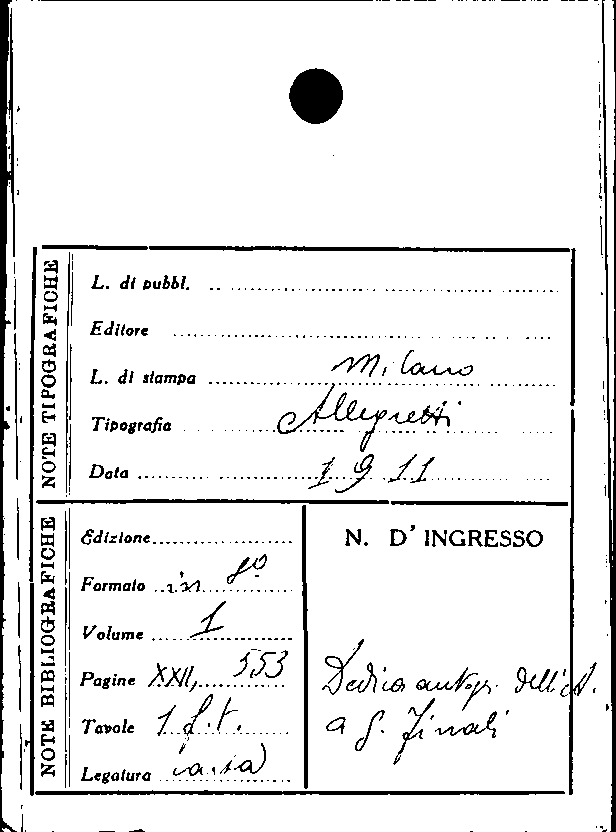 NOTE TIPOGRAFICHE
L. di pubbl.
Editore
L. di stampa Milano
Tipografia Allegretti
Data 1911
NOTE BIBLIOGRAFICHE
Edizione
Formato in 8º
Volume 1
Pagine XXII, 553
Tavole 1 f. t.
Legatura
N. D' INGRESSO
Dedica autogr. dell'A.
a G. Finali